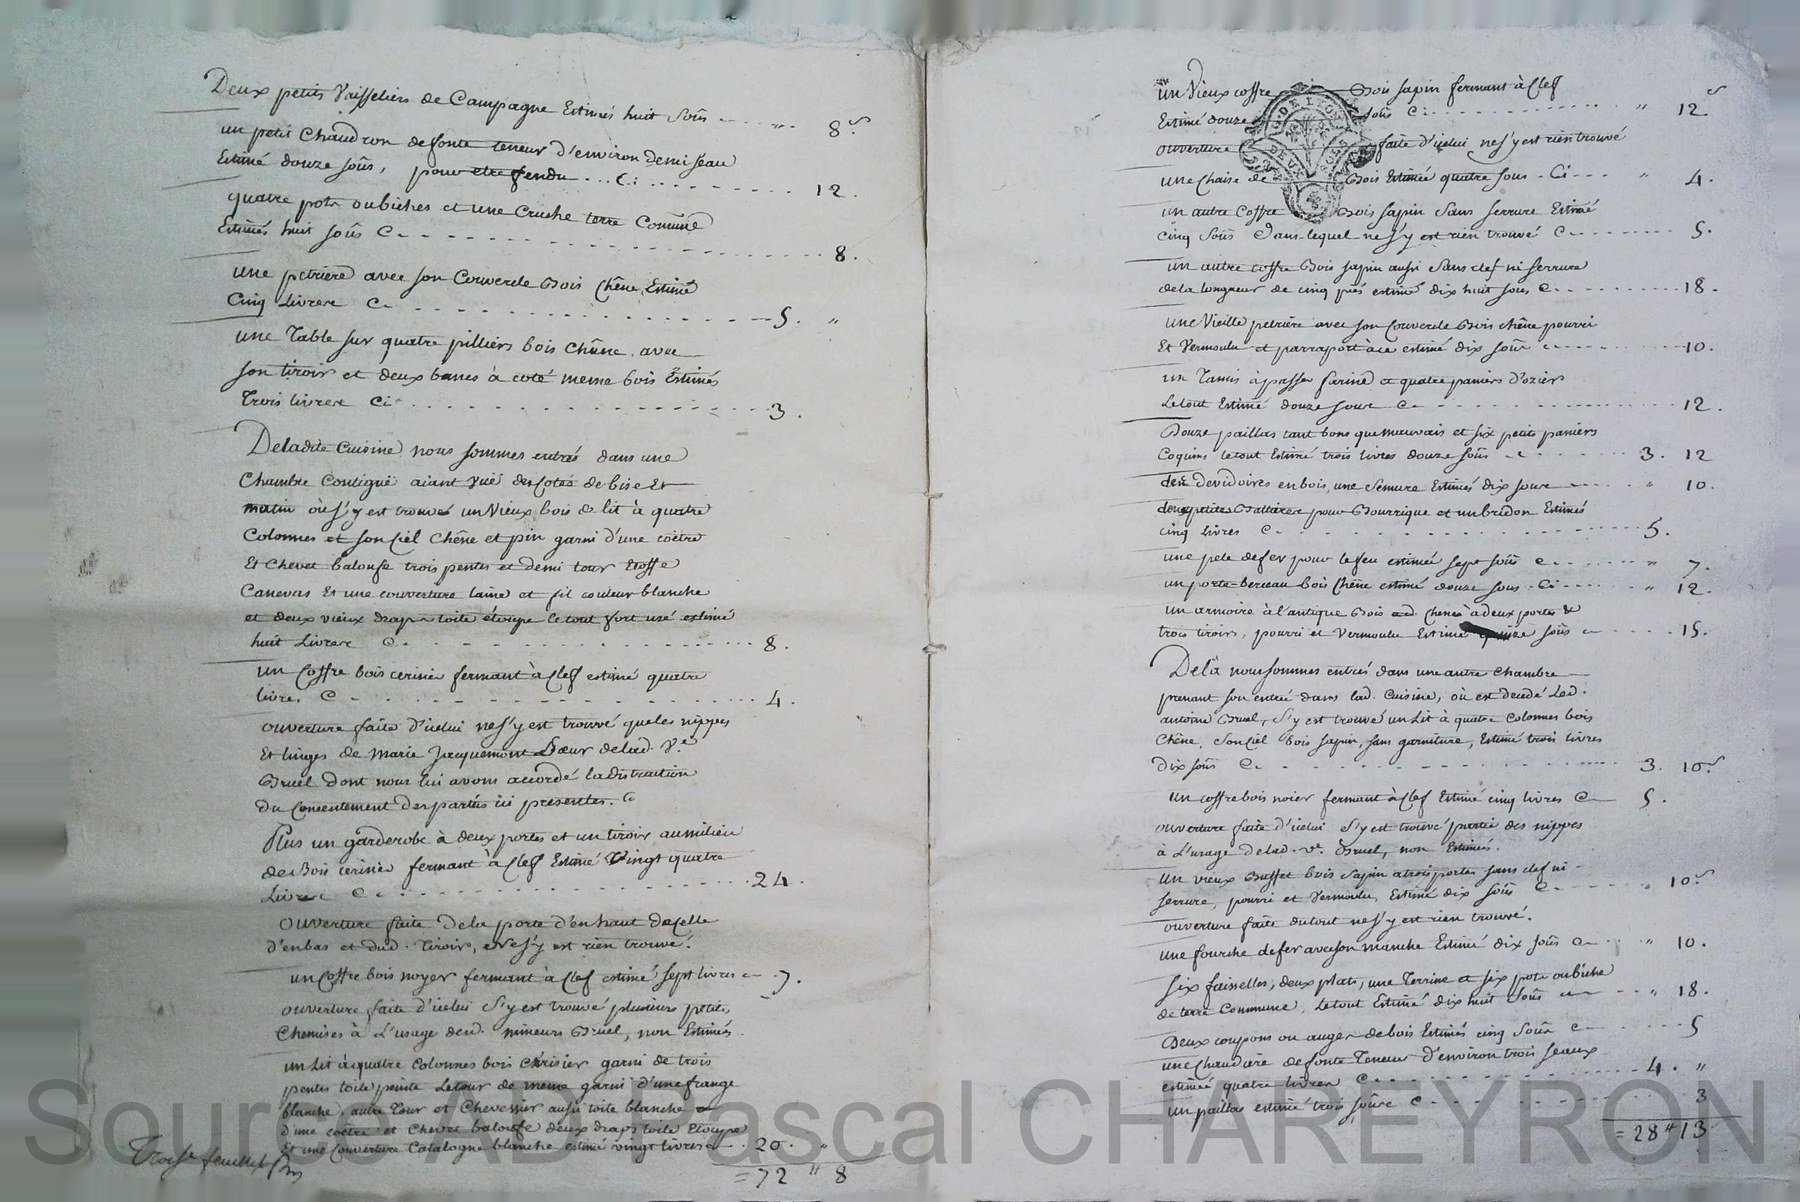 Deux petits Vaisseliers de Campagne Estimés huit sous - - - " 8.s
un petit Chaudron de fonte teneur d'environ demi seau
Estimé douze sous, pour etre fendu ... Ci ......... 12.
quatre pots ou biches et une Cruche terre Comune
Estimés huit sous C - - - - - - 8.
une petriere avec son Couvercle Bois Chêne, Estimé
Cinq Livres C - - - - - - 5. "
une Table sur quatre pilliers bois Chêne avec
son tiroir et deux bancs à coté meme bois Estimés
Trois livres Ci - - - - - - 3.
De ladite Cuisine nous sommes entrés dans une
Chambre Contigue aiant vüe des Cotés de bise Et
matin où s'y est trouvé un Vieux bois de lit à quatre
Colonnes et son Ciel Chêne et pin garni d'une coëtre
Et Chevet balouse trois pentes et demi tour Etoffe
Canevas Et une couverture laine et fil couleur blanche
et deux vieux draps toile étoupe le tout fort usé estimé
huit Livres C - - - - - - 8.
un Coffre bois cerisier fermant à Clef estimé quatre
livres C - - - - - - 4.
ouverture faite d'icelui ne s'y est trouvé que les nippes
Et linges de Marie Jacquemont Sœur de lad. Ve
Bruel dont nous lui avons accordé la distraction
Du Consentement des partés ici presentes.
Plus un garderobe à deux portes et un tiroir au milieu
de Bois cerisier fermant à Clef Estimé Vingt quatre
Livres C - - - - - - 24.
ouverture faite De la porte d'en haut de celle
d'en bas et dud. Tiroir, ne s'y est rien trouvé.
un Coffre bois noyer fermant à Clef estimé sept livres - 7.
ouverture faite d'icelui s'y est trouvé plusieurs petites
Chemises à L'usage desd. mineurs Bruel, non Estimés.
un Lit à quatre Colonnes bois Cerisier garni de trois
pentes toile peinte Le tour de meme garni d'une frange
blanche, autre Tour et Chevessier aussi toile blanche
d'une coëtre et Chevet balouse deux draps toile Etoupe
Et une Couverture Catalogne blanche estimé vingt livres 20. "
= 72 " 8
Trois.e feuillet
un Vieux coffre Bois sapin fermant à Clef
Estimé douze sous C - - - - " 12s
ouverture faite d'icelui ne s'y est rien trouvé
une Chaise de Bois Estimée quatre sous - Ci - - - " 4.
un autre Coffre Bois sapin Sans serrure Estimé
cinq Sous Dans lequel ne s'y est rien trouvé C - - - - 5.
un autre coffre Bois sapin aussi Sans clef ni serrure
de la longueur de cinq piés estimé dix huit sous C - - - - 18.
une Vieille petriere avec son Couvercle Bois chêne pourri
Et Vermoulu et par raport à ce estimé dix sous C - - - - 10.
un Tamis à passer farine et quatre paniers d'ozier
Le tout Estimé douze sous C - - - - 12.
Douze paillas tant bons que mauvais et six petits paniers
Coquins le tout Estimé trois livres douze sous C - - - 3. 12
deux devidoires en bois, une Semure Estimés dix sous - - " 10.
deux petites Battieres pour Bourrique et un bridon Estimés
cinq livres C - - - - - - 5.
une pele de fer pour le feu estimée sept sous C - - - " 7.
un porte-berceau bois Chêne estimé douze sous. Ci - - - " 12.
un armoire à l'antique Bois Chene à deux portes &
trois tiroirs, pourri et Vermoulu Estimé quinze sous C - - - 15.
De là nous sommes entrés dans une autre Chambre
prenant son entrée dans lad. Cuisine, où est decedé Led.
antoine Bruel, s'y est trouvé un Lit à quatre Colonnes bois
Chêne, Son Ciel bois sapin, sans garniture, Estimé trois livres
dix sous C - - - - - - 3. 10s
un coffre bois noier fermant à Clef Estimé cinq livres C - 5.
ouverture faite d'icelui s'y est trouvé partie des nippes
à L'usage de lad. Ve. Bruel, non Estimés.
un vieux Buffet bois Sapin à trois portes sans clef ni
serrure, pourri et Vermoulu, Estimé dix sous C - - - " 10s
ouverture faite du tout ne s'y est rien trouvé.
une fourche de fer avec son manche Estimé dix sous C - - " 10.
Six faisselles, deux plats, une Terrine et six pots ou biche
de terre Commune, Le tout Estimé dix huit sous C - - " 18.
Deux coupons ou auges de bois Estimés cinq sous C - - - 5
une Chaudiere de fonte Teneur d'environ trois seaux
estimée quatre livres C - - - - - 4. "
un paillas estimé trois sous C - - - - 3
= 28 # 13
Source AD Pascal CHAREYRON